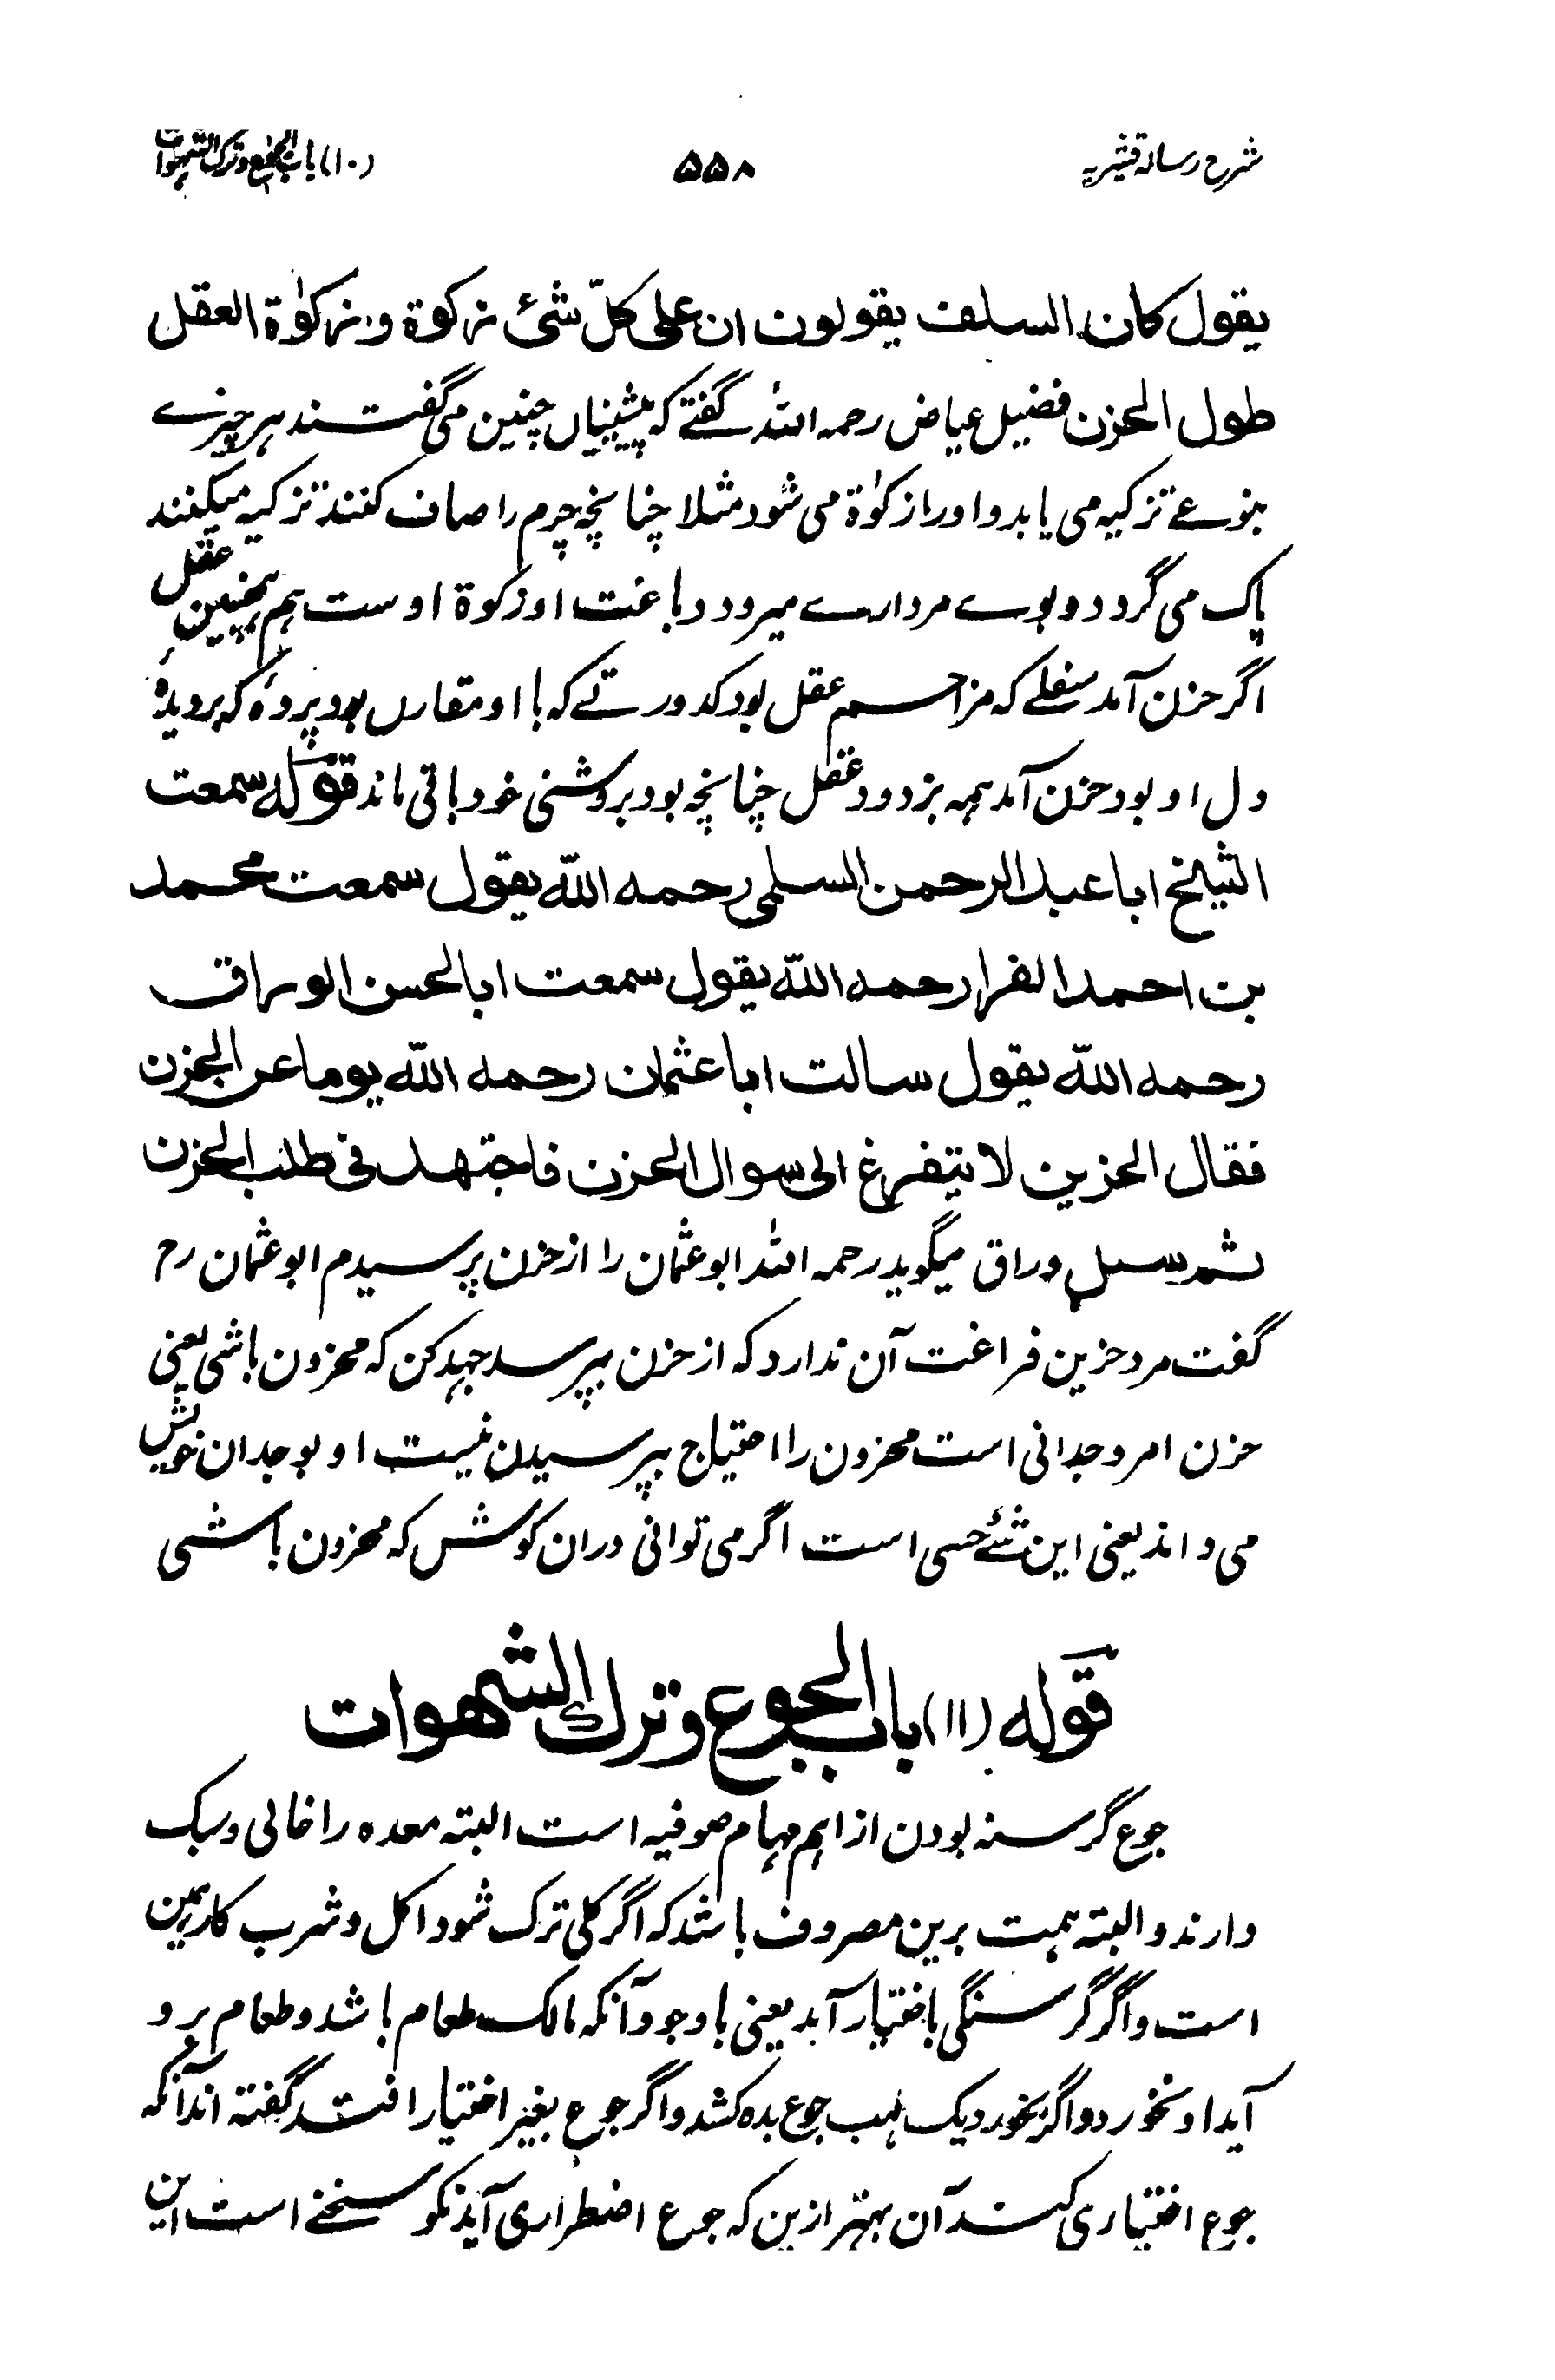 شرح رسالہ قشیریہ ۵۵۸ (۱۰) باب الجوع و ترک الشہوات
یقول کان السلف یقولون ان علی کلّ شئ زکوة و زکوٰة العقل
طول الحزن فضیل عیاض رحمہ اللہ گفتے کہ پیشینیاں چنین می گفتند ہر چیزے
بنوعے تزکیہ می یابد و اورا زکوٰة می شود مثلا چنانچہ چرم را صاف کنند تزکیہ میکنند
پاک می گردد و بوے مردارے میرود دباغت او زکوة اوست ہم ہمچنین عقل
اگر حزن آمد سفلے کہ مزاحم عقل بود کدورتے کہ با او مقارں بود پردۂ کہ بر دیدہ
دل او بود حزن آمد ہمہ بزدود عقل چنانچہ بود بروشنی خود باقی ماند قولہ سمعت
الشیخ ابا عبد الرحمن السلمی رحمہ اللّٰہ یقول سمعت محمد
بن احمد الفرا رحمہ اللّٰہ یقول سمعت ابا الحسن الوراق
رحمہ اللّٰہ یقول سالت ابا عثمان رحمہ اللّٰہ یوما عن الحزن
فقال الحزین لا یتفرغ الی سوال الحزن فاجتهد فی طلب الحزن
ثم سل وراق میگوید رحمہ اللہ ابو عثمان را از حزن پرسیدم ابو عثمان رح
گفت مرد حزین فراغت آن ندارد کہ از حزن بپرسد جہد کن کہ محزون باشی یعنی
حزن امر وجدانی است محزون را احتیاج بپرسیدن نیست او بوجدان خویش
می داند یعنی این شئے حسی است اگر می توانی دران کوشش کہ محزون باشی
قولہ (۱۱) باب الجوع و ترک الشهوات
جوع گرسنہ بودن از اہم مہام صوفیہ است البتہ معدہ را خالی و سبک
دارند و البتہ ہمت برین مصروف باشد کہ اگر کلی ترک شود اکل و شرب کار ہمین
است و اگر گرسنگی باختیار آید یعنی با وجود آنکہ مالک طعام باشد و طعام برو
آید او نخورد و اگر بخورد یک لہب جوع بدہ کشد و اگر جوع بغیر اختیار افتد گفتہ اند آنکہ
جوع اختیاری کند آن بہتر ازین کہ جوع اضطراری آید نکو سخنے است این